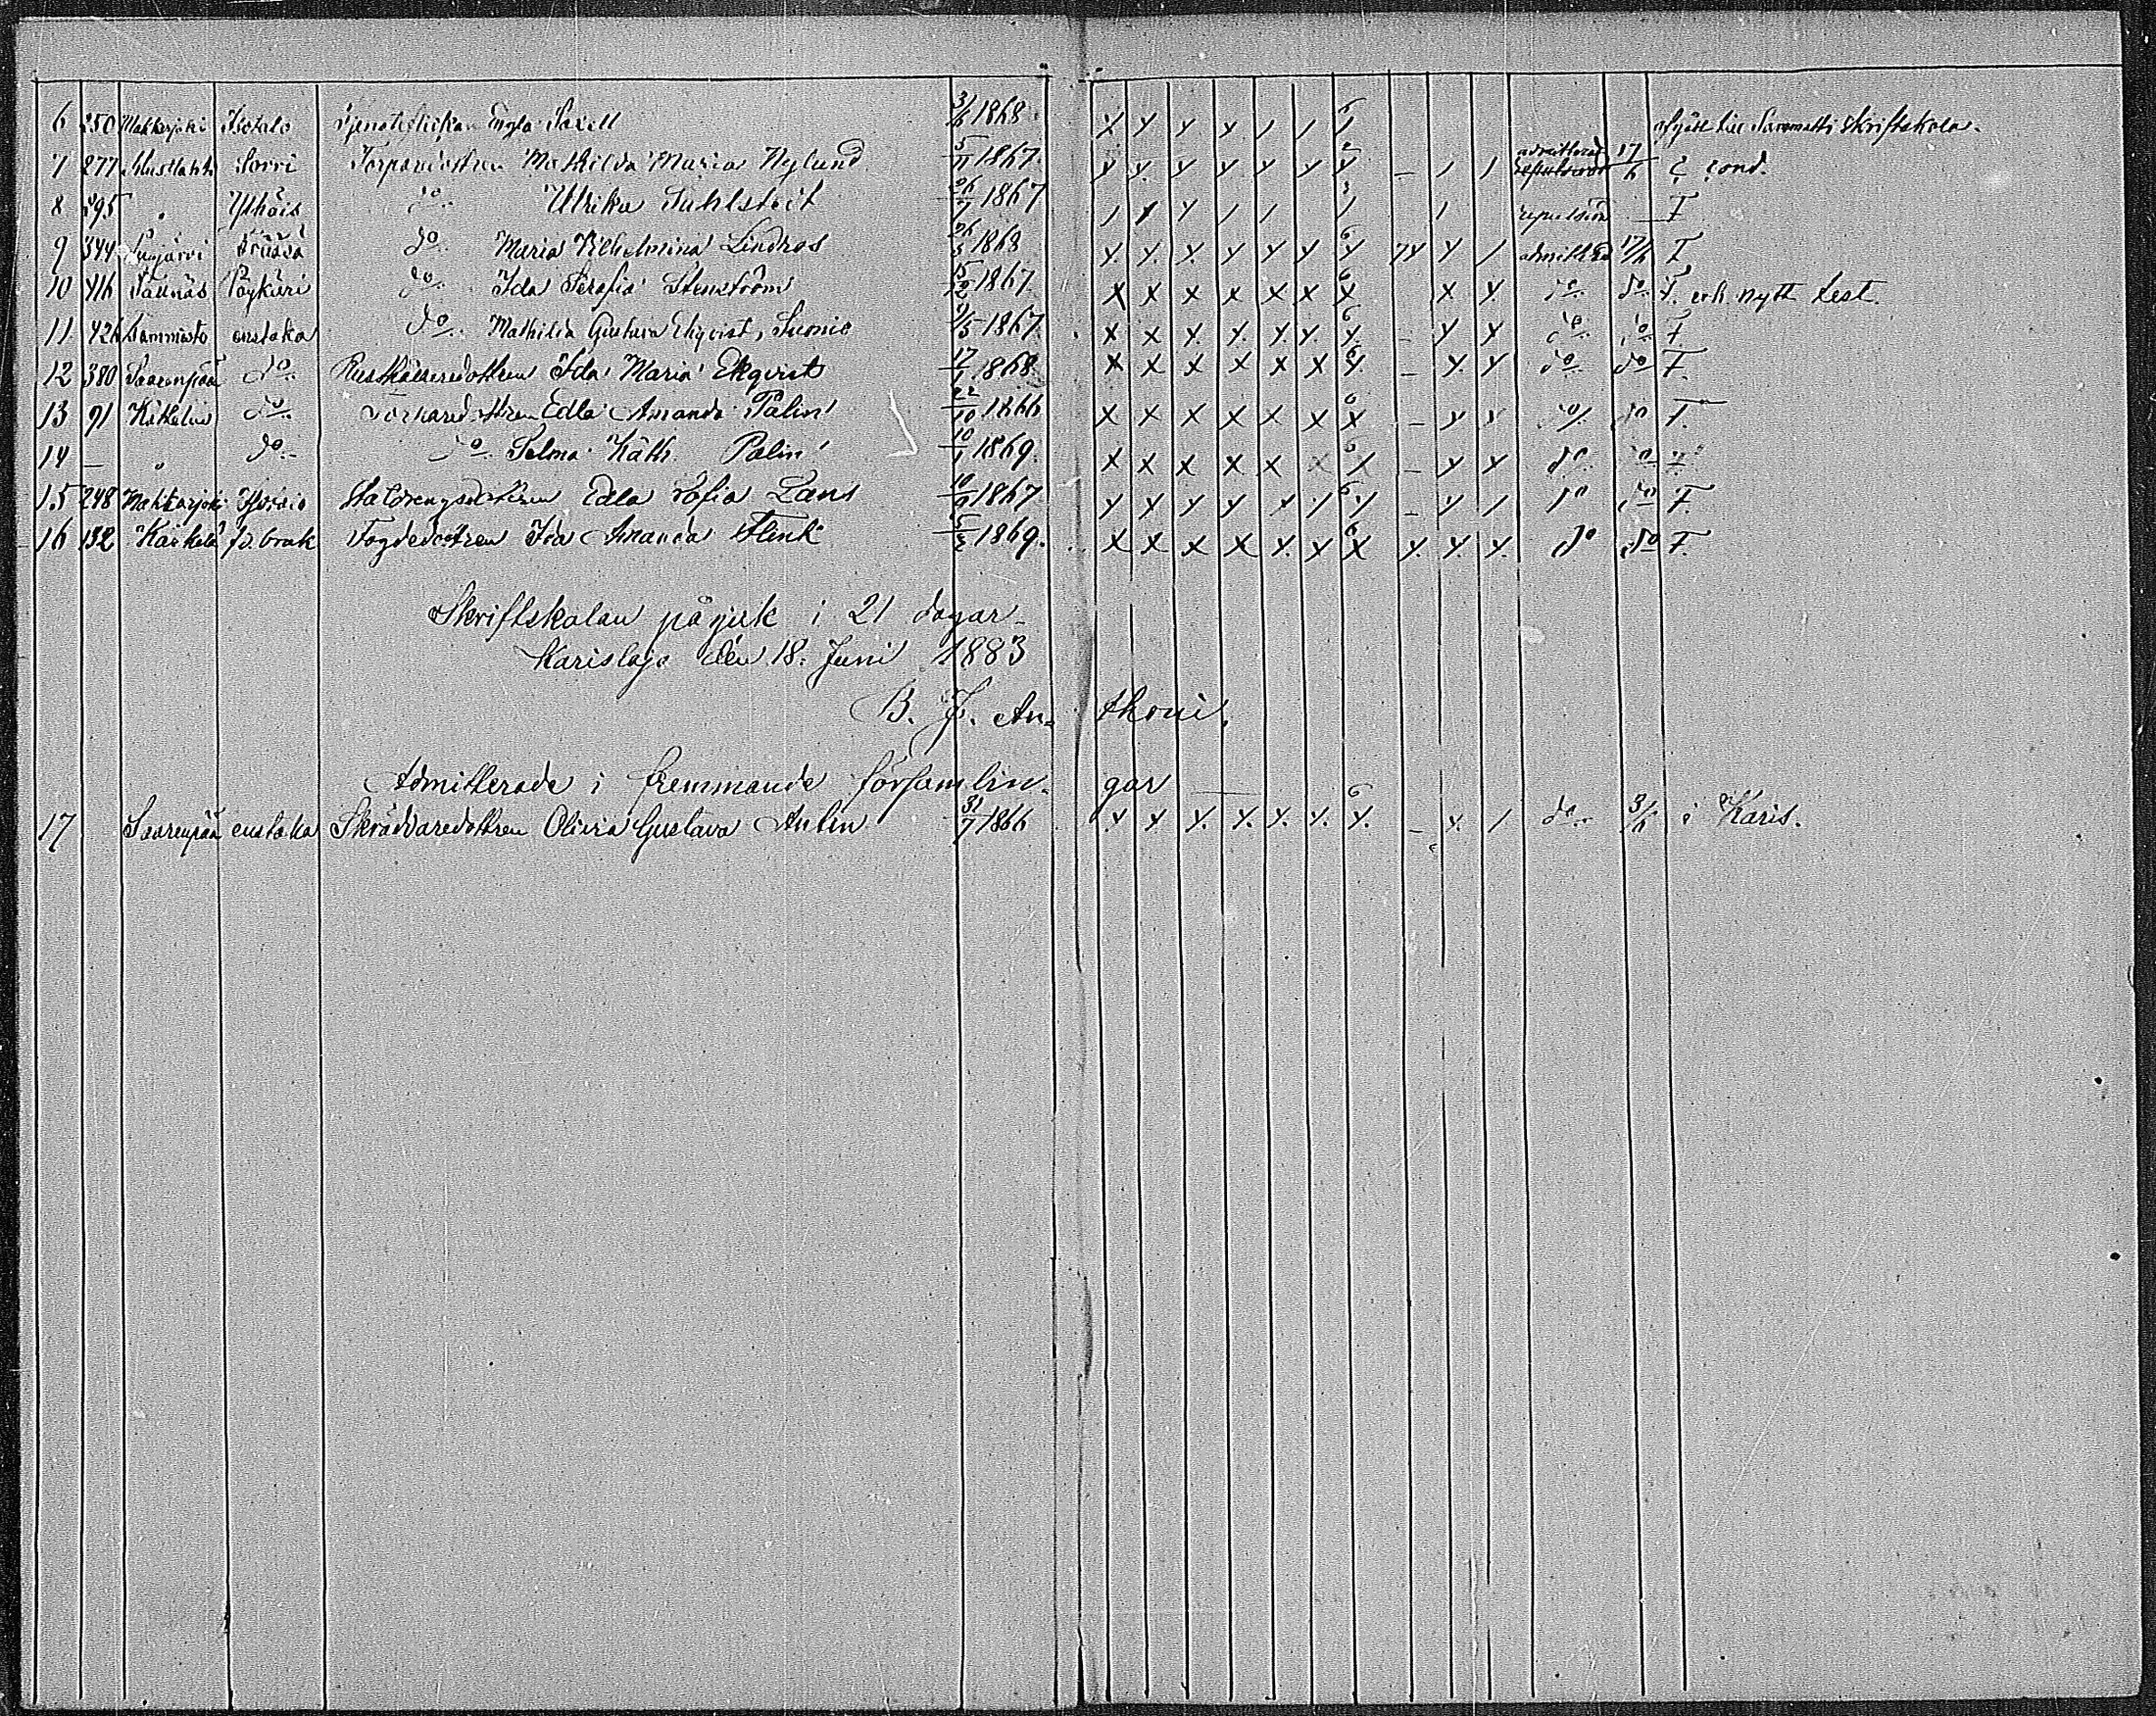 6 250 Makkarjoki Isotalo Tjensteflickan Engla Saxell 3/6 1868 X Y Y Y / / / 6 afgått till Sammatti skriftskola.
7 277 Mustlahti Sorri Torparedottren Mathilda Maria Nylund 5/11 1867. Y Y. Y Y Y Y Y 2 – / / admitterad 17/6 cond.
8 295 „ Ylhäis do Ulrika Dahlstedt 26/7 1867 / Y Y / / / 3 / repulsion – F
9 344 Suojärvi do Maria Vilhelmina Lindros 26/3 1868 Y. Y. Y. Y Y Y Y 6 Y Y / admitterad 17/6 F
10 416 Pöykäri do Ida Serafia Stenström 15/2 1867. X X X X X X X 6 X Y. do do F. och nytt test.
11 426 Sammasto enstaka do Mathilda Gustava Ekqvist, Suonio 9/5 1867. X X Y. Y. Y. Y. Y. 6 – Y Y do do F.
12 380 Saarenpää do Rusthållaredottren Ida Maria Ekqvist 17/1 1868 X X X X X X Y. 6 – Y. Y do do F.
13 91 Kattelus do Edla Amanda Palin 22/10 1866 X X X X X X X 6 – Y Y do do F.
14 – „ do do Selma Kath. Palin 10/1 1869. X X X X X X X 6 – Y Y do do „
15 248 Makkarjoki Edla Sofia Lans 10/9 1867 Y Y Y Y X / Y 6 – Y / do do F.
16 132 Kärkelä fs. bruk Fogdedottren Ida Amanda Flink 5/2 1869. X X X X Y. Y X 6 Y. Y. Y. do do F.
Skriftskolan pågick i 21 dagar –
Karislojo den 18. Juni 1883
B. F. Anthoni.
Admitterade i fremmande församlingar
17 Saarenpää enstaka Skräddaredottren Olivia Gustava Antin 31/7 1866 Y Y Y. Y. Y. Y. Y. 6 – Y. / do 3/6 i Karis.